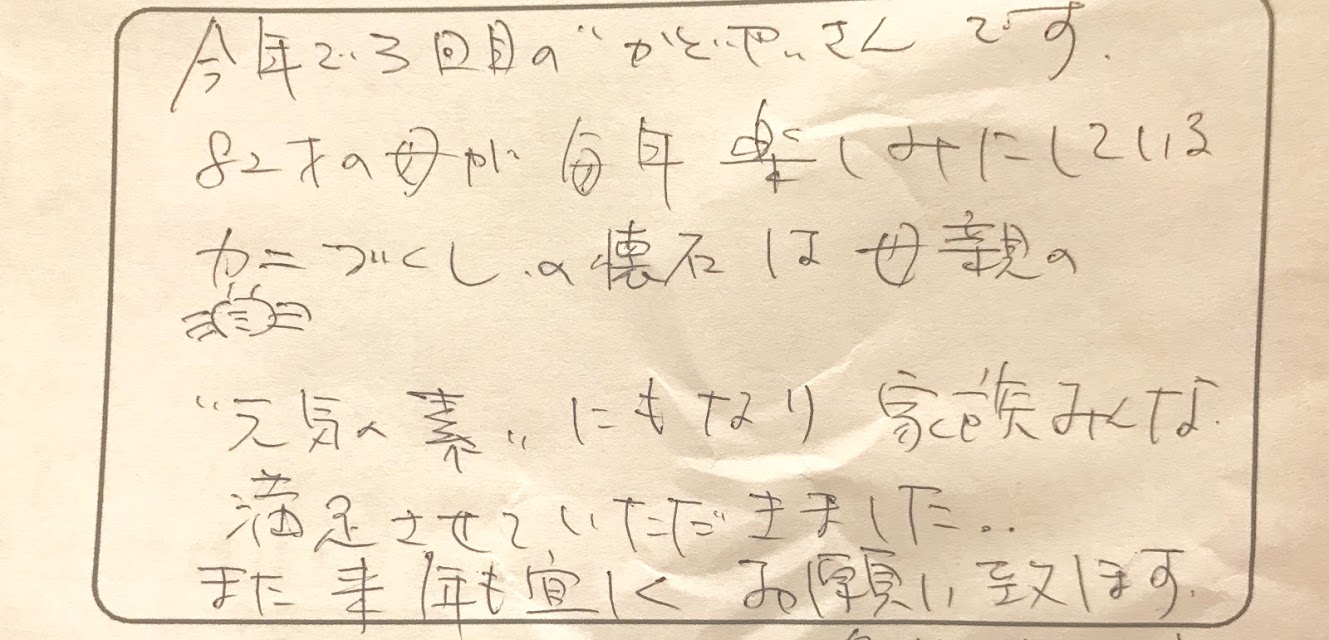 今年で3回目の"かどや"さんです.
82才の母が毎年楽しみにしている
カニづくしの懐石は母親の
"元気の素"にもなり 家族みんな
満足させていただきました..
また来年も宜しくお願い致します.